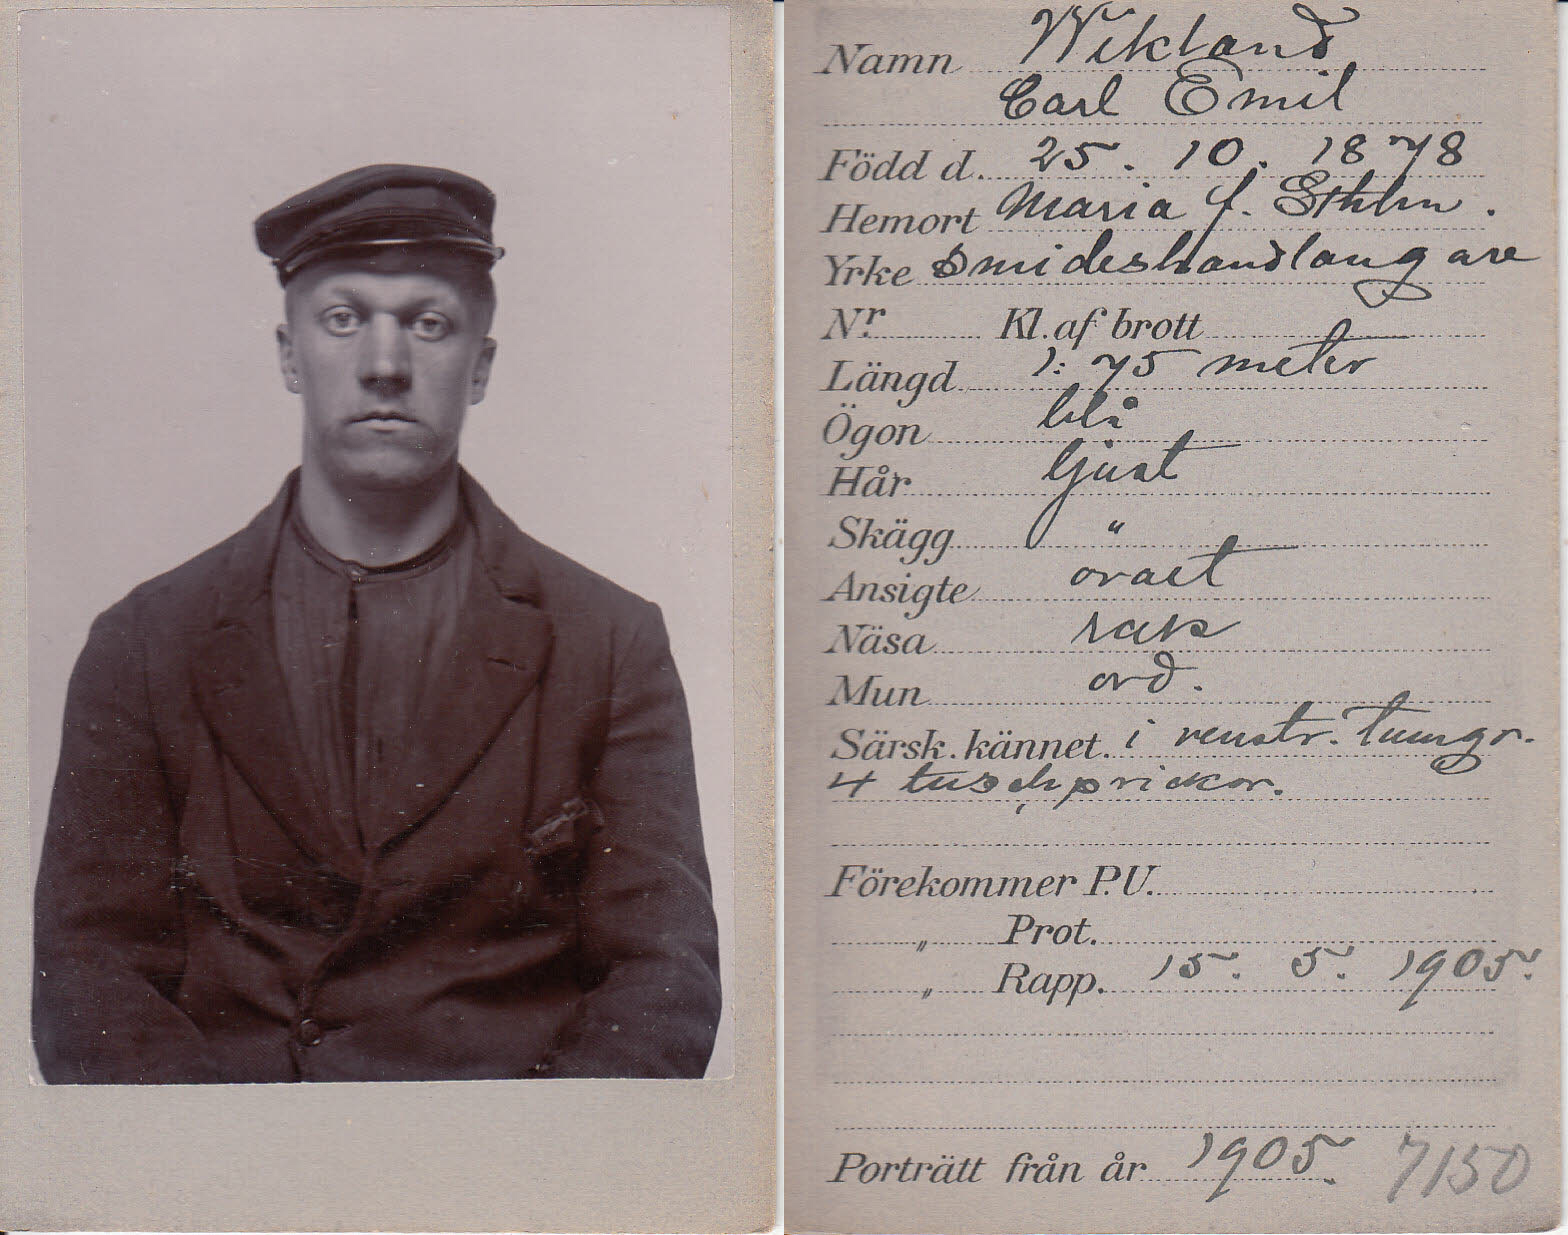 Namn Wikland
Carl Emil
Född d. 25. 10. 1878
Hemort Maria f. Sthlm.
Yrke Smideshandlangare
Nr. Kl. af brott
Längd 1:75 meter
Ögon blå
Hår ljust
Skägg "
Ansigte ovalt
Näsa rak
Mun ord.
Särsk. kännet. i venstr. tumgr.
4 tuschprickor.
Förekommer P.U.
" Prot.
" Rapp. 15. 5. 1905.
Porträtt från år 1905. 7150